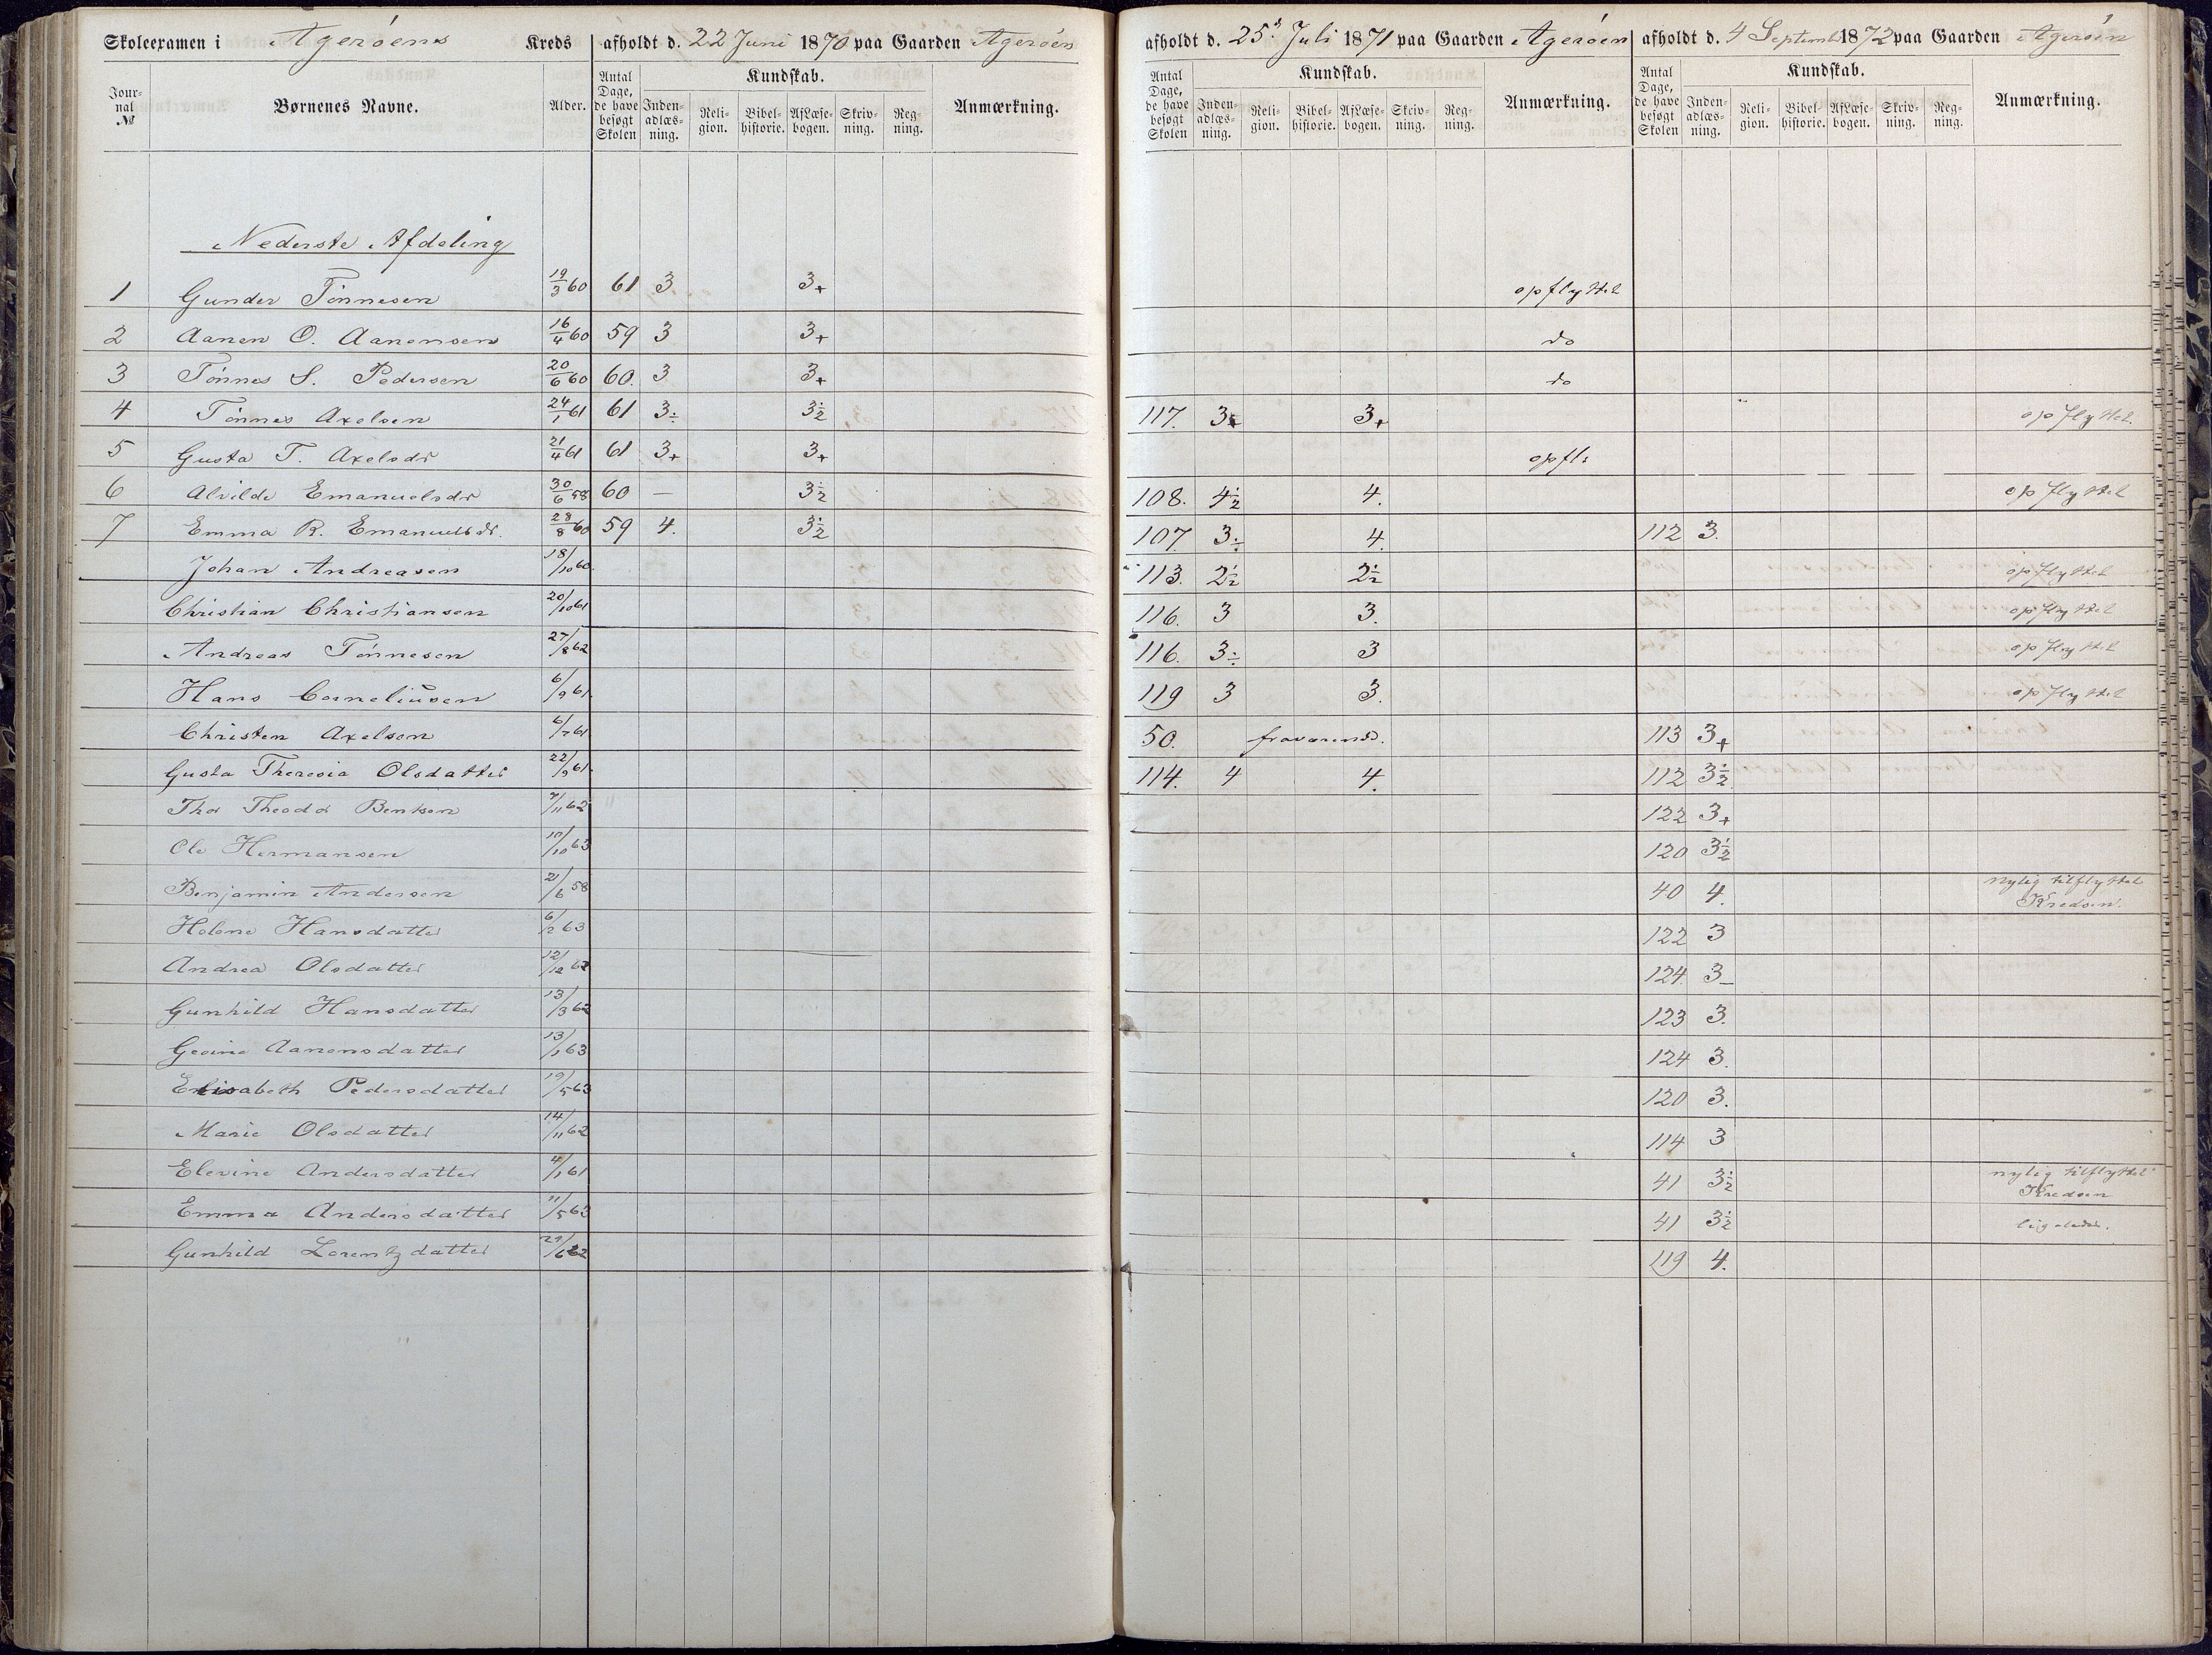 Skoleexamen i Agerøens Kreds afholdt d. 22 Juni 1870 paa Gaarden Agerøen afholdt d. 25de Juli 1871 paa Gaarden Agerøen afholdt d. 4 Septemb 1872 paa Gaarden Agerøen
Journal № Børnenes Navne. Alder. Antal Dage, de have besøgt Skolen Kundskab. Indenadlæsning. Religion. Bibelhistorie. Af Læsebogen. Skrivning. Regning. Anmærkning.
Antal Dage, de have besøgt Skolen Kundskab. Indenadlæsning. Religion. Bibelhistorie. Af Læsebogen. Skrivning. Regning. Anmærkning.
Antal Dage, de have besøgt Skolen Kundskab. Indenadlæsning. Religion. Bibelhistorie. Af Læsebogen. Skrivning. Regning. Anmærkning.
Nederste Afdeling
1 Gunder Tønnesen 19/3 60 61 3 3+ opflyttet
2 Aanen O. Aanensen 16/4 60 59 3 3+ do
3 Tønnes S. Pedersen 20/6 60 60. 3 3+ do
4 Tønnes Axelsen 24/1 61 61 3÷ 3½ 117. 3+ 3+ opflyttet.
5 Gusta T. Axelsdr 21/4 61 61 3+ 3+ opfl:
6 Alvilde Emanuelsdr 30/6 58 60 — 3½ 108. 4½ 4. opflyttet
7 Emma R. Emanuelsdr. 28/8 60 59 4. 3½ 107. 3÷ 4. 112 3.
Johan Andreasen 18/10 60. 113. 2½ 2½ opflyttet
Christian Christiansen 20/10 61 116. 3 3. opflyttet
Andreas Tønnesen 27/8 62 116. 3÷ 3 opflyttet
Hans Corneliusen 6/9 61. 119 3 3. opflyttet
Christen Axelsen 6/7 61 50. fraværende. 113 3+
Gusta Theresia Olsdatter 22/9 61. 114. 4 4. 112 3½
Thor Theodor Bentsen 7/11 62 122 3+
Ole Hermansen 10/10 63 120 3½
Benjamin Andersen 21/6 58 40 4. nylig tilflyttet
Kredsen.
Helene Hansdatter 6/2 63 122 3
Andrea Olsdatter 12/12 62 124. 3-
Gunhild Hansdatter 13/3 62 123 3.
Geoine Aanensdatter 13/1 63 124 3.
Elisabeth Pedersdatter 19/5 63 120 3.
Marie Olsdatter 14/11 62 114 3
Elevine Andersdatter 4/1 61 41 3½ nylig tilflyttet
Kredsen
Emma Andersdatter 11/5 63 41 3½ ligeledes.
Gunhild Lorentzdatter 29/6 62 119 4.